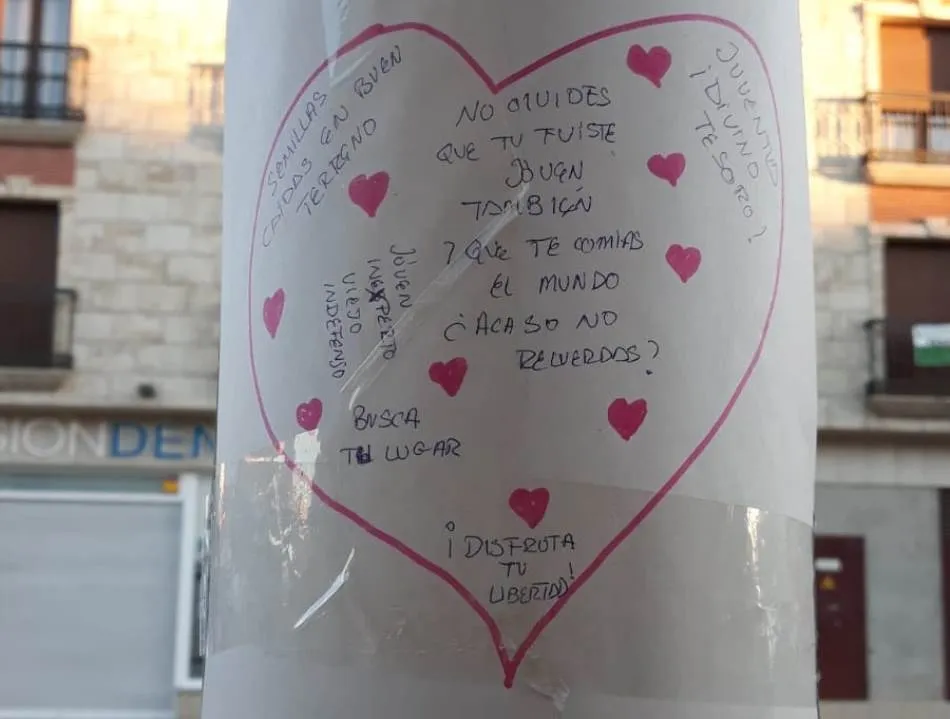 SEMILLAS
CAIDAS EN BUEN
TERRENO
NO OLVIDES
QUE TU FUISTE
JOVEN
TAMBIÉN
Y QUE TE COMIAS
EL MUNDO
¿ACASO NO
RECUERDAS?
JUVENTUD
¡DIVINO
TESORO?
JOVEN
INEXPERTO
VIEJO
INDEFENSO
BUSCA
TU LUGAR
¡DISFRUTA
TU
LIBERTAD!
SIONDEN